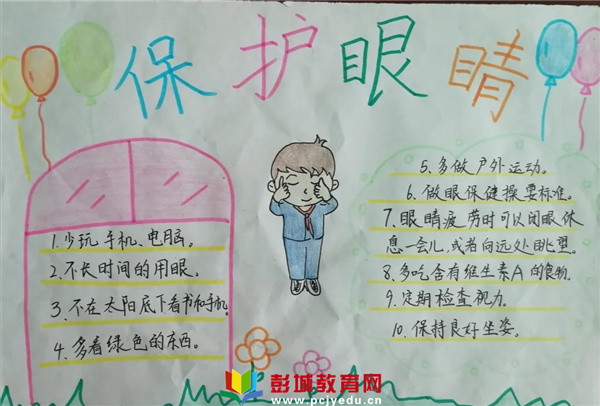 保护眼睛
1. 少玩手机、电脑。
2. 不长时间的用眼。
3. 不在太阳底下看书和手机。
4. 多看绿色的东西。
5. 多做户外运动。
6. 做眼保健操要标准。
7. 眼睛疲劳时可以闭眼休
息一会儿，或者向远处眺望。
8. 多吃含有维生素A的食物。
9. 定期检查视力。
10. 保持良好坐姿。
彭城教育网
www.pcjyedu.cn